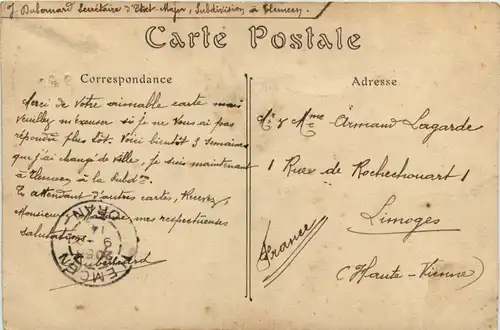 J. Dubernard Secrétaire d'Etat-Major, Subdivision à Tlemcen
Carte Postale
Correspondance
Adresse
Merci de votre aimable carte mais
Veuillez m'excuser si je ne vous ai pas
répondu plus tôt. Voici bientôt 3 semaines
que j'ai changé de ville, je suis maintenant
à Tlemcen à la Subd?.
En attendant d'autres cartes, Recevez,
Monsieur mes respectueuses
salutations.
Dubernard
TLEMCEN
ORAN
14
Mr & Mme Armand Lagarde
1 Rue de Rochechouart 1
Limoges
France
(Haute-Vienne)